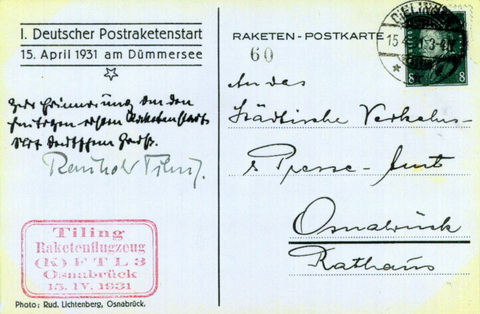 I. Deutscher Postraketenstart
15. April 1931 am Dümmersee
Zur Erinnerung an den
heutigen ersten Raketenstart
Mit deutschem Gruß.
Reinhold Tiling.
Tiling
Raketenflugzeug
(K) E T L 3
Osnabrück
15. IV. 1931
Photo: Rud. Lichtenberg, Osnabrück.
RAKETEN-POSTKARTE
60
15.4.
8 8
An das
Städtische Verkehrs-
& Presse-Amt
Osnabrück
Rathaus